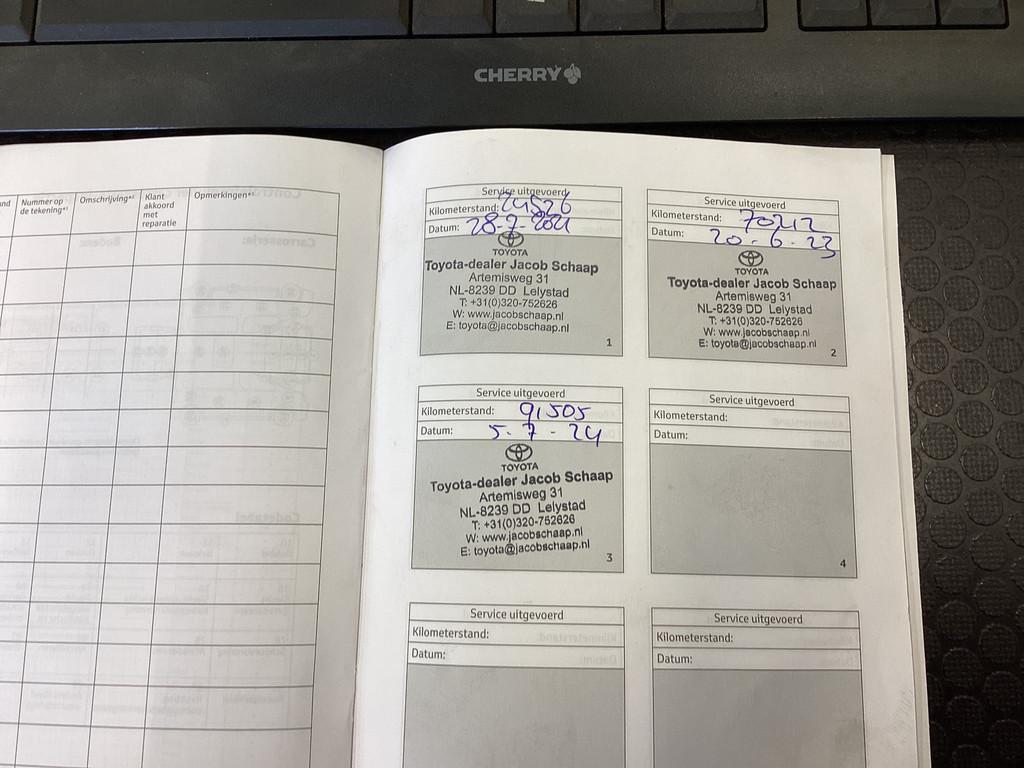 CHERRY
nd
Nummer op
de tekening*¹
Omschrijving*²
Klant
akkoord
met
reparatie
Opmerkingen*³
Service uitgevoerd
Kilometerstand: 24526
Datum: 28-7-2021
TOYOTA
Toyota-dealer Jacob Schaap
Artemisweg 31
NL-8239 DD Lelystad
T: +31(0)320-752626
W: www.jacobschaap.nl
E: toyota@jacobschaap.nl
1
Service uitgevoerd
Kilometerstand: 70212
Datum: 20-6-23
TOYOTA
Toyota-dealer Jacob Schaap
Artemisweg 31
NL-8239 DD Lelystad
T: +31(0)320-752626
W: www.jacobschaap.nl
E: toyota@jacobschaap.nl
2
Service uitgevoerd
Kilometerstand: 91505
Datum: 5-7-24
TOYOTA
Toyota-dealer Jacob Schaap
Artemisweg 31
NL-8239 DD Lelystad
T: +31(0)320-752626
W: www.jacobschaap.nl
E: toyota@jacobschaap.nl
3
Service uitgevoerd
Kilometerstand:
Datum:
4
Service uitgevoerd
Kilometerstand:
Datum:
Service uitgevoerd
Kilometerstand:
Datum: